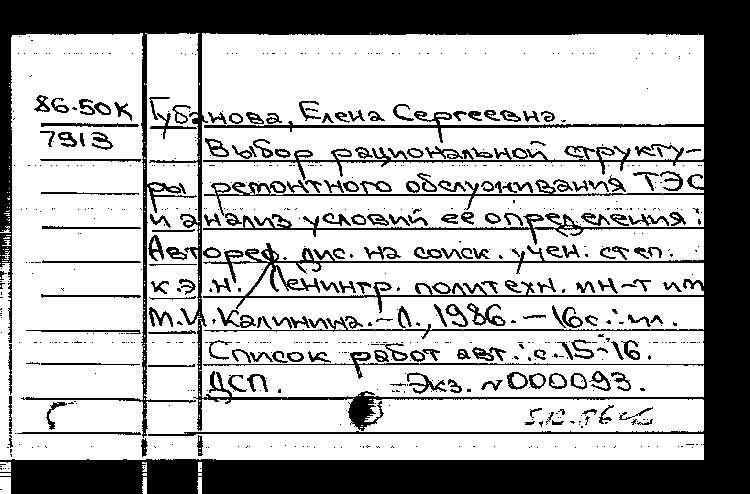 86-50К Губанова, Елена Сергеевна.
7913 Выбор рациональной структу-
ры ремонтного обслуживания ТЭС
и анализ условий ее определения:
Автореф. дис. на соиск. учен. степ.
к.э.н. / Ленингр. политехн. ин-т им
М.И. Калинина. - Л., 1986. - 16 с.: ил.
Список работ авт.: с. 15-16.
ДСП. - Экз. №000093.